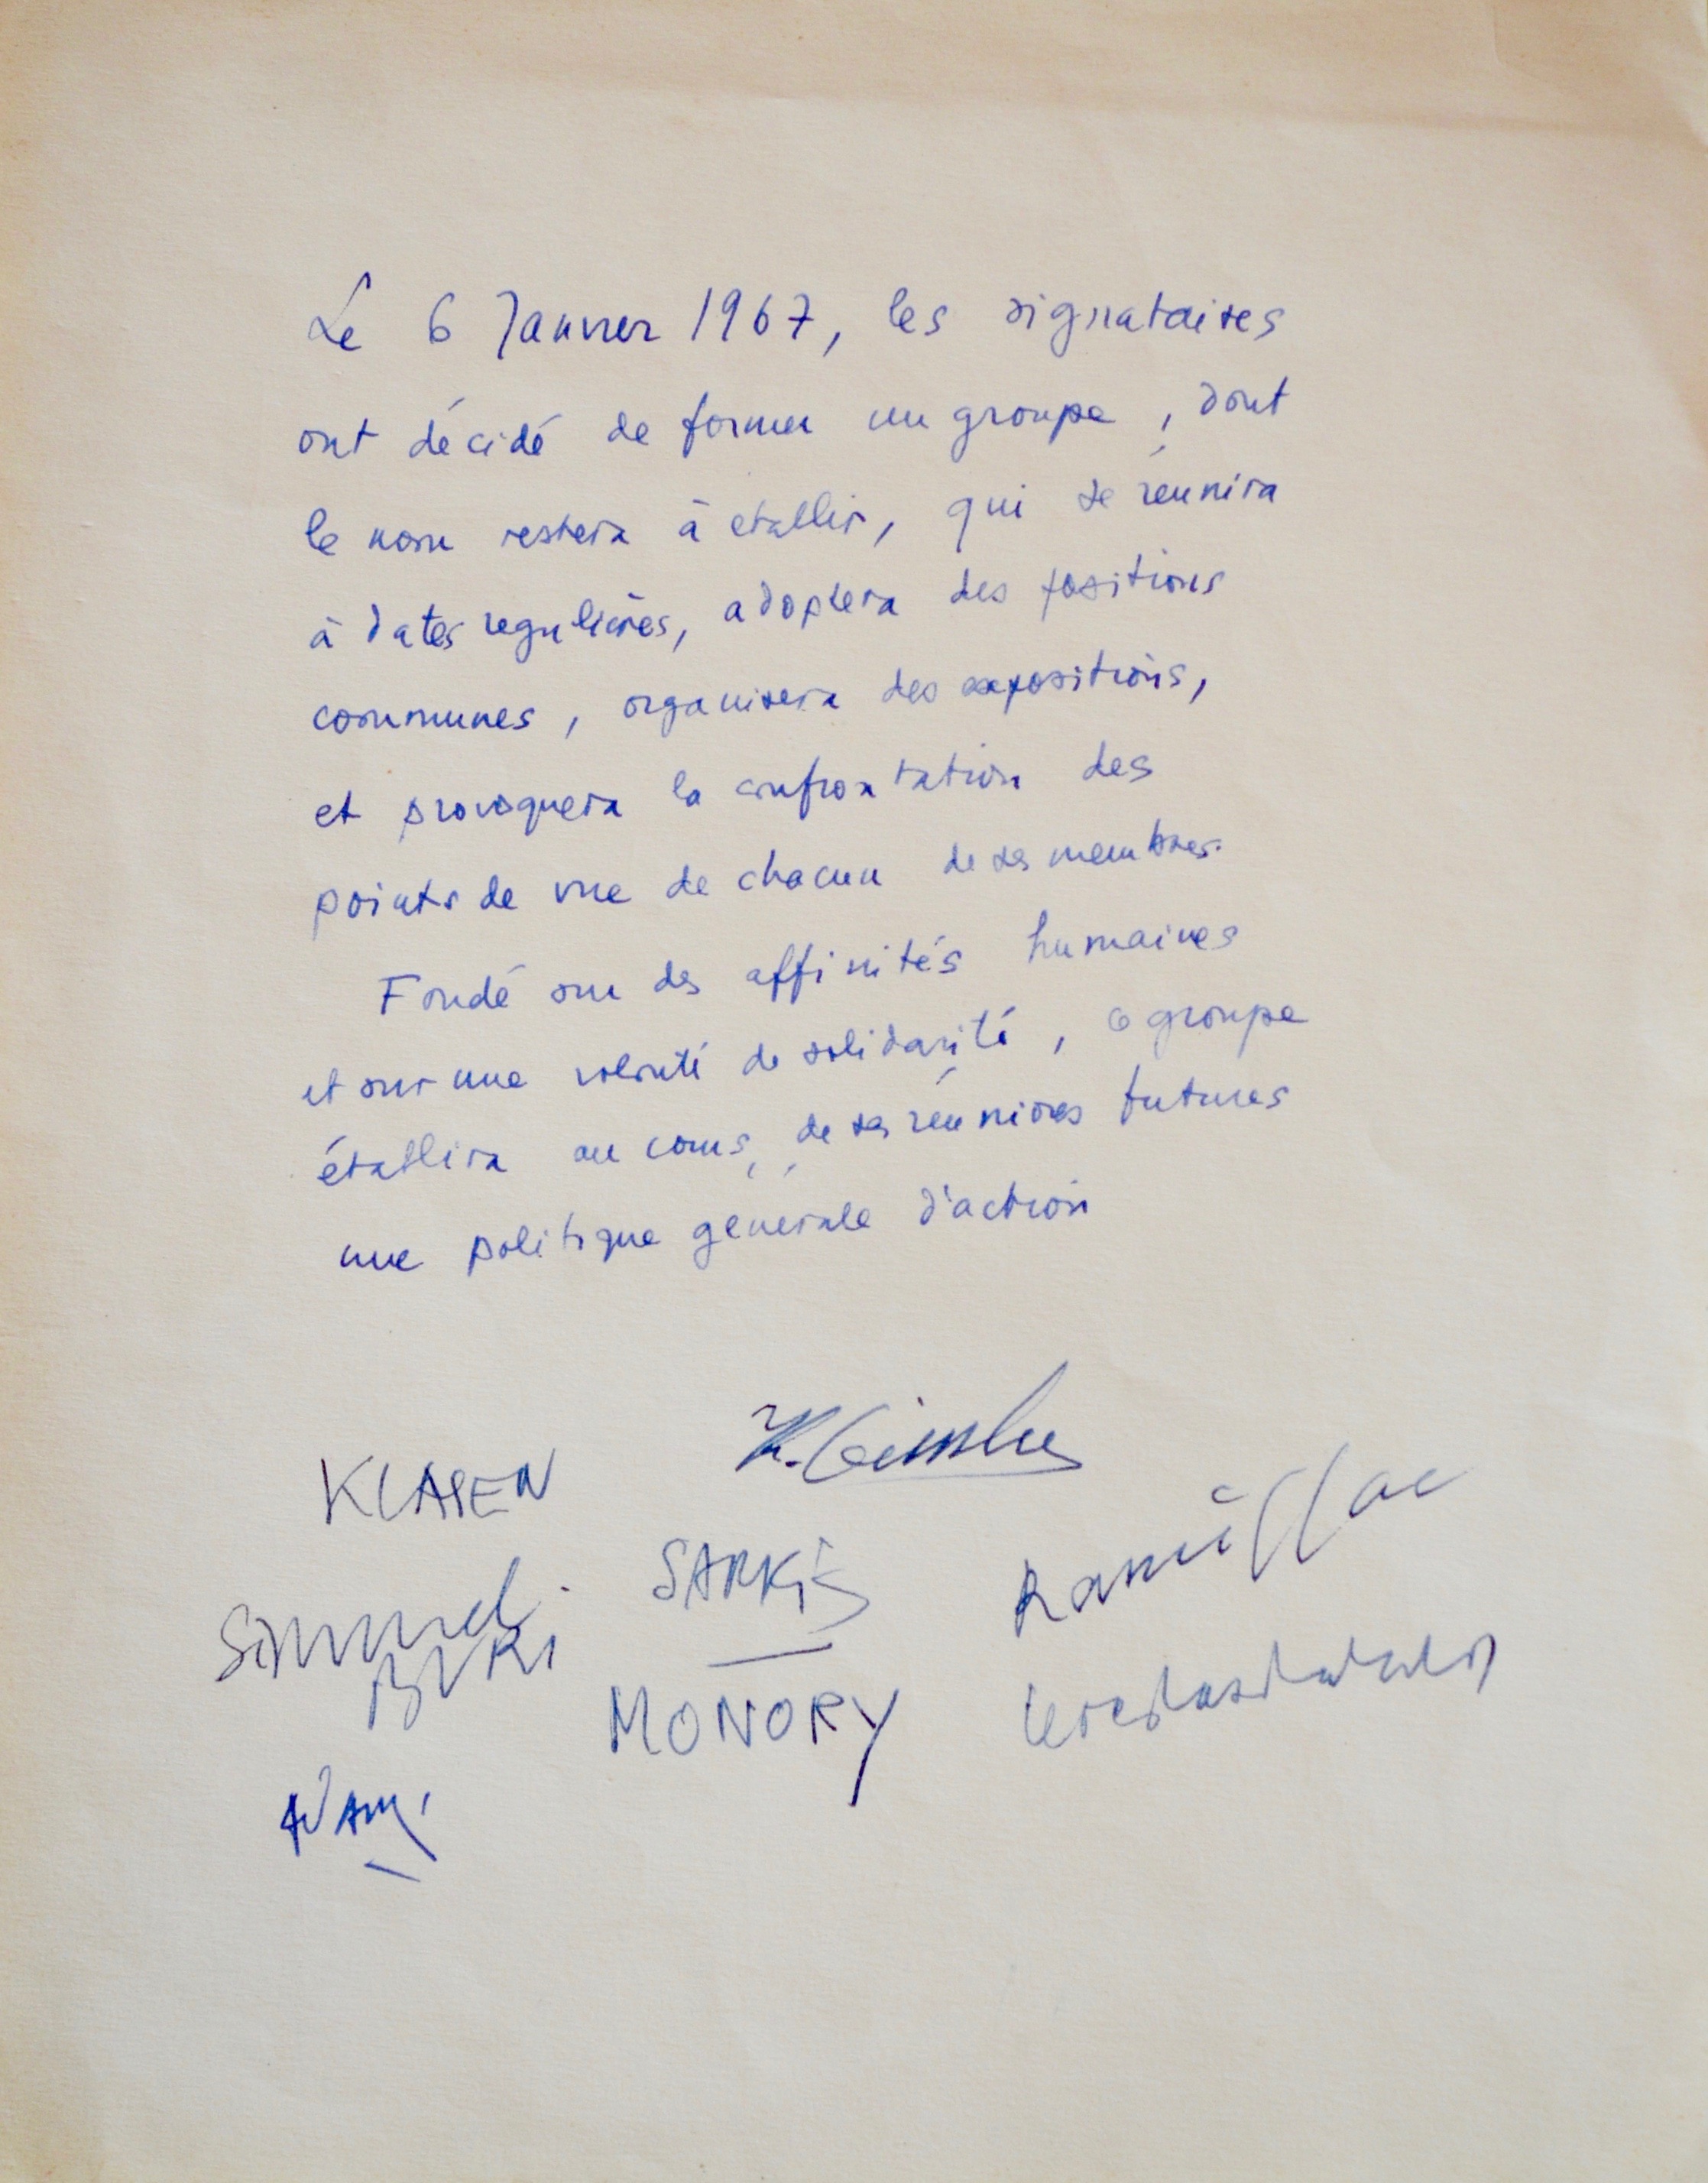 Le 6 Janvier 1967, les signataires
ont décidé de former un groupe, dont
le nom restera à etablir, qui se réunira
à dates regulières, adoptera des positions
communes, organisera des expositions,
et provoquera la confrontation des
points de vue de chacun de ses membres.
Fondé sur des affinités humaines
et sur une volonté de solidarité, ce groupe
établira au cours de ses réunions futures
une politique générale d'action
KLASEN
SARKIS
Buri
MONORY